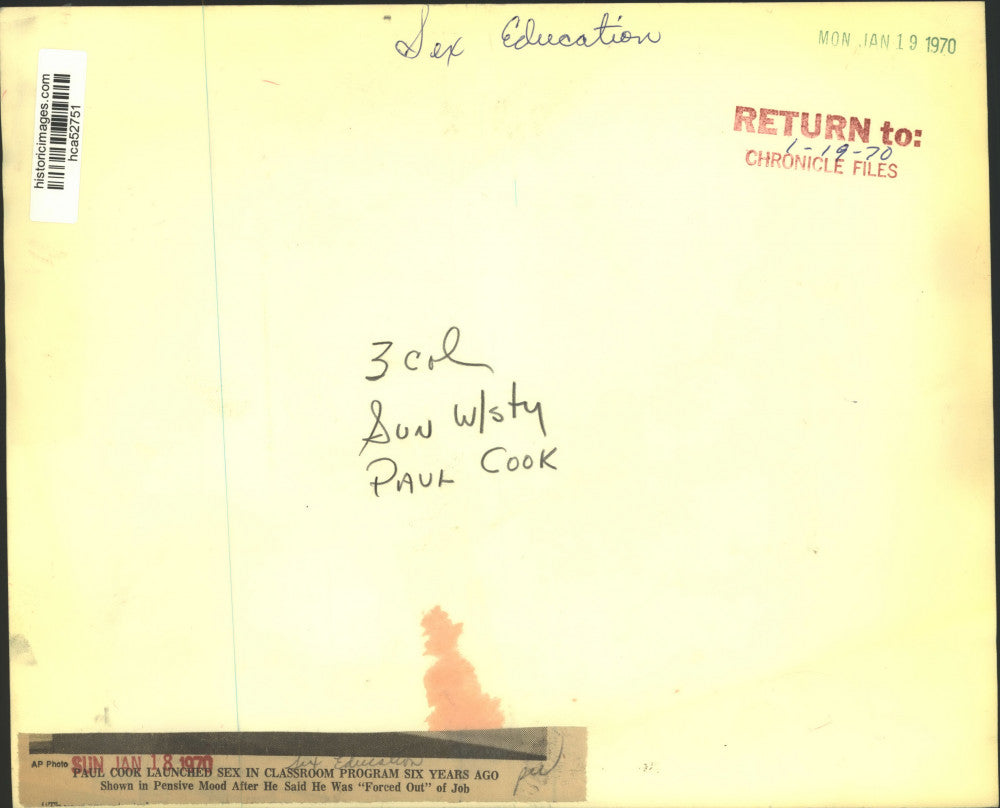 Sex Education
MON JAN 19 1970
historicimages.com
hca52751
RETURN to:
1-19-70
CHRONICLE FILES
3 col
Sun W/sty
PAUL COOK
AP Photo
SUN JAN 18 1970
Sex Education
PAUL COOK LAUNCHED SEX IN CLASSROOM PROGRAM SIX YEARS AGO
Shown in Pensive Mood After He Said He Was "Forced Out" of Job